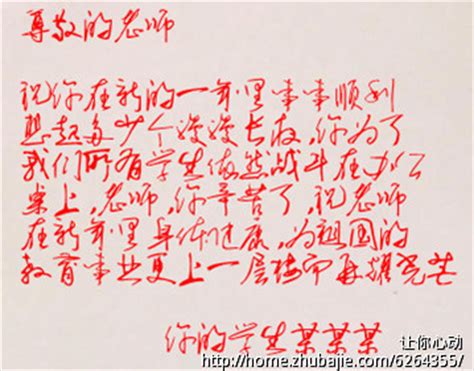 尊敬的老师
祝你在新的一年里事事顺利
想起多少个漫漫长夜，你为了
我们所有学生依然战斗在办公
桌上，老师，你辛苦了，祝老师
在新年里身体健康，为祖国的
教育事业更上一层楼而再耀光芒
你的学生某某某
让你心动
http://home.zhubajie.com/6264355/